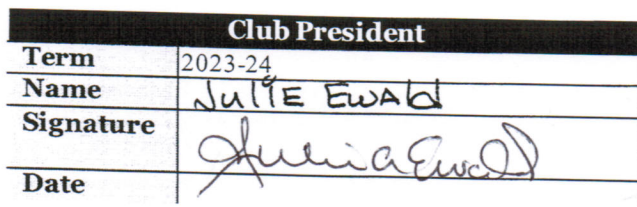 Club President
Term 2023-24
Name Julie Ewald
Signature Julia Ewald
Date